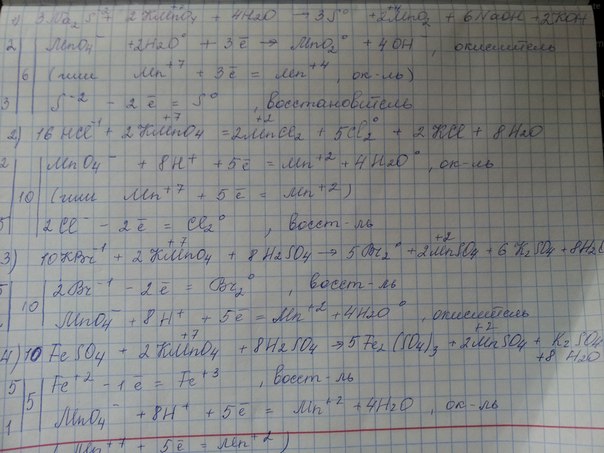 1) 3Na2S⁻² + 2KMnO4⁺⁷ + 4H2O → 3S⁰ + 2MnO2⁺⁴ + 6NaOH + 2KOH
2 | MnO4⁻ + 2H2O⁰ + 3ē → MnO2⁰ + 4OH⁻, окислитель
6 | (или Mn⁺⁷ + 3ē = Mn⁺⁴, ок-ль)
3 | S⁻² - 2ē = S⁰, восстановитель
2) 16HCl⁻¹ + 2KMnO4⁺⁷ = 2MnCl2⁺² + 5Cl2⁰ + 2KCl + 8H2O
2 | MnO4⁻ + 8H⁺ + 5ē = Mn⁺² + 4H2O⁰, ок-ль
10 | (или Mn⁺⁷ + 5ē = Mn⁺²)
5 | 2Cl⁻ - 2ē = Cl2⁰, восст-ль
3) 10KBr⁻¹ + 2KMnO4⁺⁷ + 8H2SO4 → 5Br2⁰ + 2MnSO4⁺² + 6K2SO4 + 8H2O
5 | 10 | 2Br⁻¹ - 2ē = Br2⁰, восст-ль
MnO4⁻ + 8H⁺ + 5ē = Mn⁺² + 4H2O⁰, окислитель
4) 10FeSO4 + 2KMnO4⁺⁷ + 8H2SO4 → 5Fe2(SO4)3 + 2MnSO4⁺² + K2SO4 + 8H2O
5 | 5 | Fe⁺² - 1ē = Fe⁺³, восст-ль
1 | MnO4⁻ + 8H⁺ + 5ē = Mn⁺² + 4H2O, ок-ль
(Mn⁺⁷ + 5ē = Mn⁺²)